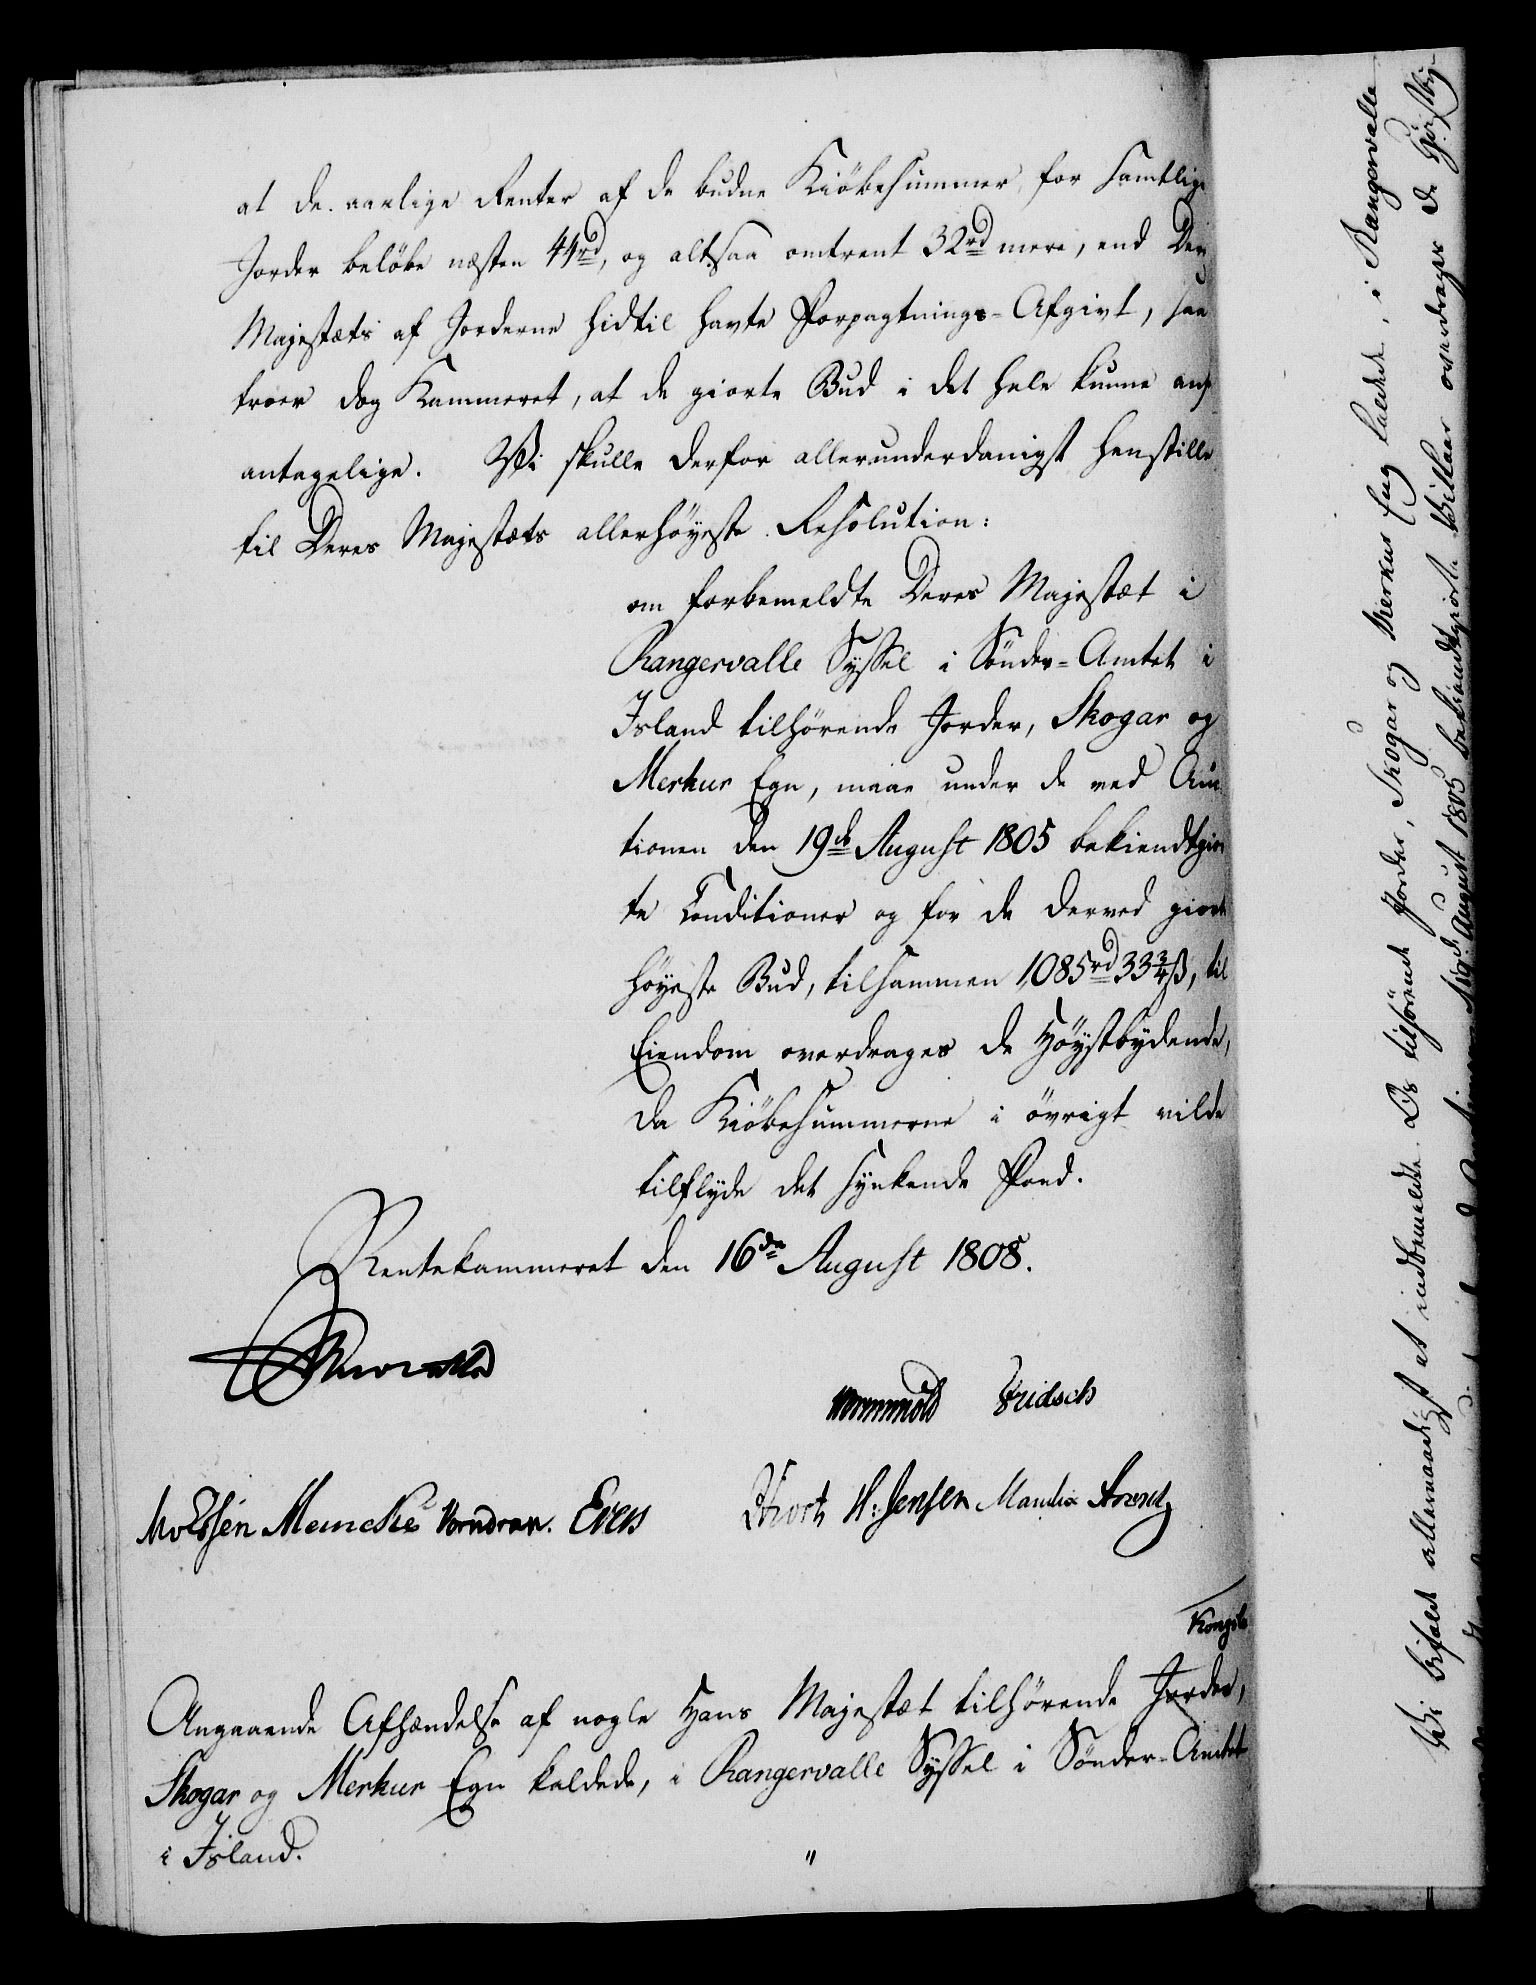 at de aarlige Renter af de budne Kiöbesummer for samtlige
Jorder belöbe næsten 44rd, og altsaa omtrent 32rd mere, end Deres
Majestæts af Jorderne hidtil havte Forpagtnings-Afgivt, saa
troer dog Kammeret, at de giorte Bud i det hele kunne ansees
antagelige. Vi skulle derfor allerunderdanigst henstille
til Deres Majestæts allerhöyeste Resolution:
om forbemeldte Deres Majestæt i
Rangervalle Syssel i Sönder-Amtet i
Island tilhörende Jorder, Skogar og
Merkur Egn, maae under de ved Auc
tionen den 19de August 1805 bekiendtgior
te Conditioner og for de derved giorte
höyeste Bud, tilsammen 1,085rd 33 3/4 ß, til
Eiendom overdrages de Höystbydende,
da Kiöbesummerne i övrigt vilde
tilflyde det synkende Fond.
Rentekammeret den 16de August 1808.
Wormskiold Fridsch
MvEssen Meincke Vorndran. Evers H: Jensen Manthix Arentz
Kongel:
Angaaende Afhændelse af nogle Hans Majestæt tilhörende Jorder,
Skogar og Merkur Egn kaldede, i Rangervalle Syssel i Sönder-Amtet
i Island.
"
Vi bifalde allernaadigst at indbemeldte Os tilhörende Jorder, Skogar og Merkur Eng kaldede, i Rangervalle
19de August 1805 bekiendtgiorte Vilkaar overdrages de Höistby-